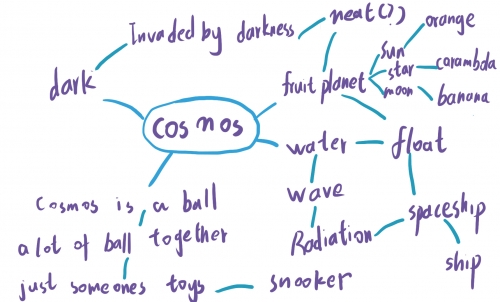 Invaded by darkness
neat(?)
orange
dark
fruit planet
sun
star
moon
carambola
banana
cosmos
water
float
wave
Cosmos is a ball
a lot of ball together
Radiation
spaceship
just someones toys
snooker
ship